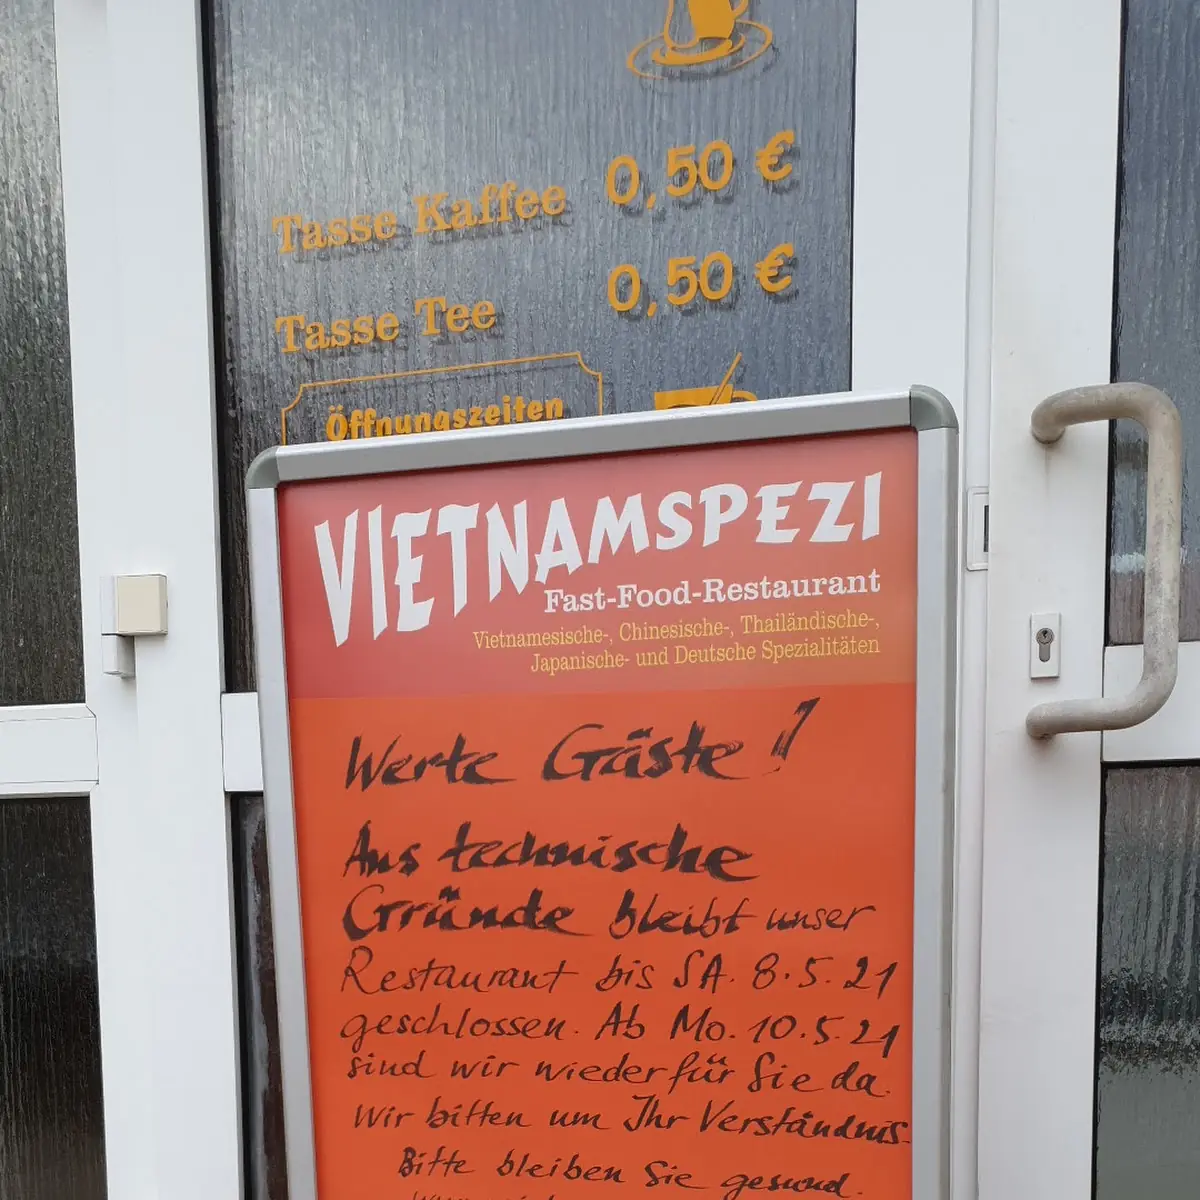 Tasse Kaffee 0,50 €
Tasse Tee 0,50 €
Öffnungszeiten
VIETNAMSPEZI
Fast-Food-Restaurant
Vietnamesische-, Chinesische-, Thailändische-,
Japanische- und Deutsche Spezialitäten
Werte Gäste!
Aus technische
Gründe bleibt unser
Restaurant bis SA. 8.5.21
geschlossen. Ab Mo. 10.5.21
sind wir wieder für Sie da.
Wir bitten um Ihr Verständnis.
Bitte bleiben Sie gesund.